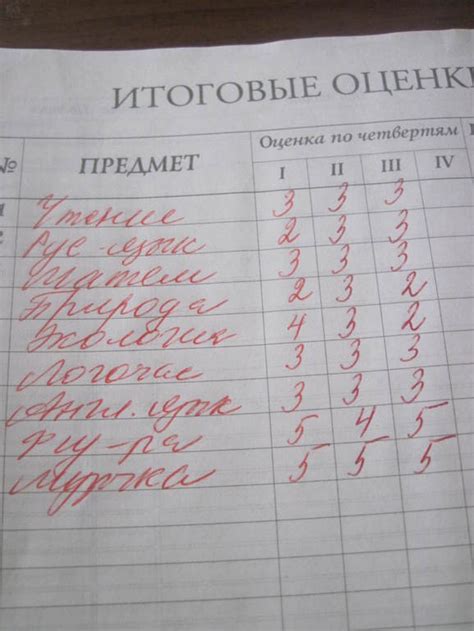 ИТОГОВЫЕ ОЦЕНКИ
№ ПРЕДМЕТ Оценка по четвертям
I II III IV
Чтение 3 3 3
Рус. язык 2 3 3
Матем 3 3 3
Природа 2 3 2
Экология 4 3 2
Логочас 3 3 3
Англ. язык 3 3 3
Физ-ра 5 4 5
Музыка 5 5 5